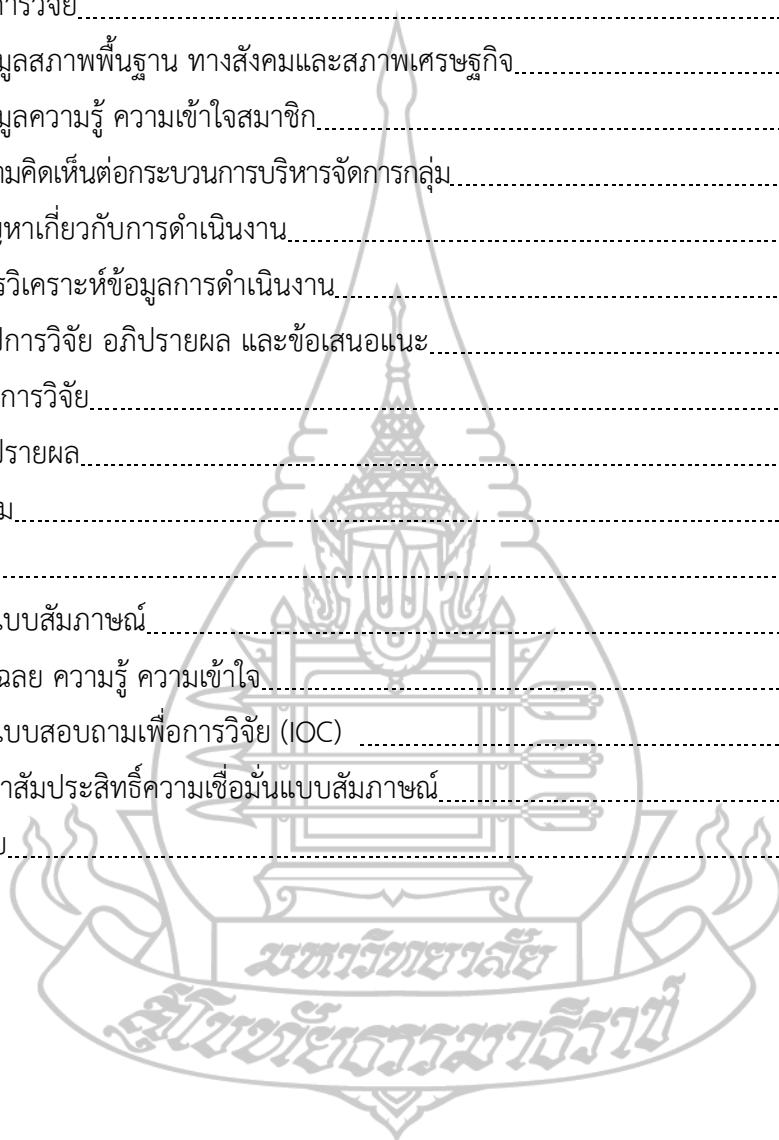 การวิจัย
มูลสภาพพื้นฐาน ทางสังคมและสภาพเศรษฐกิจ
มูลความรู้ ความเข้าใจสมาชิก
ามคิดเห็นต่อกระบวนการบริหารจัดการกลุ่ม
ญหาเกี่ยวกับการดำเนินงาน
รวิเคราะห์ข้อมูลการดำเนินงาน
ปการวิจัย อภิปรายผล และข้อเสนอแนะ
การวิจัย
ปรายผล
ม
แบบสัมภาษณ์
ฉลย ความรู้ ความเข้าใจ
แบบสอบถามเพื่อการวิจัย (IOC)
าสัมประสิทธิ์ความเชื่อมั่นแบบสัมภาษณ์
ย
มหาวิทยาลัย
สุโขทัยธรรมาธิราช